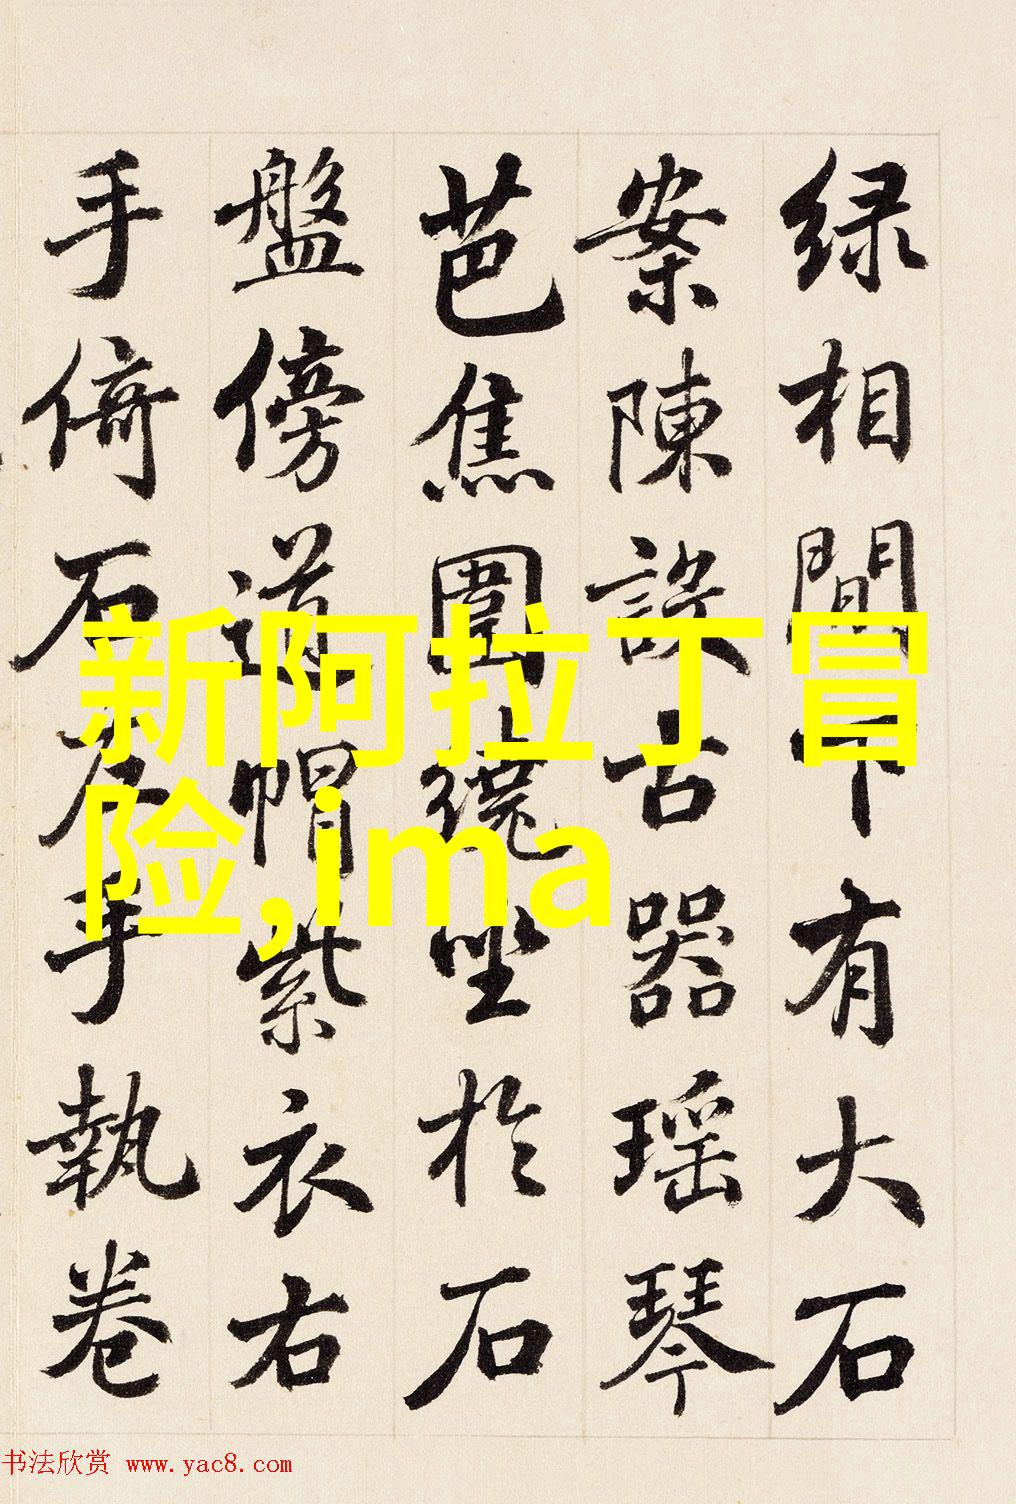 绿相間下有大石
案陳設古器瑶琴
芭焦圍繞坐於石
盤傍道帽紫衣右
手倚石左手執卷
新阿拉丁冒
险,ima
书法欣赏 www.yac8.com